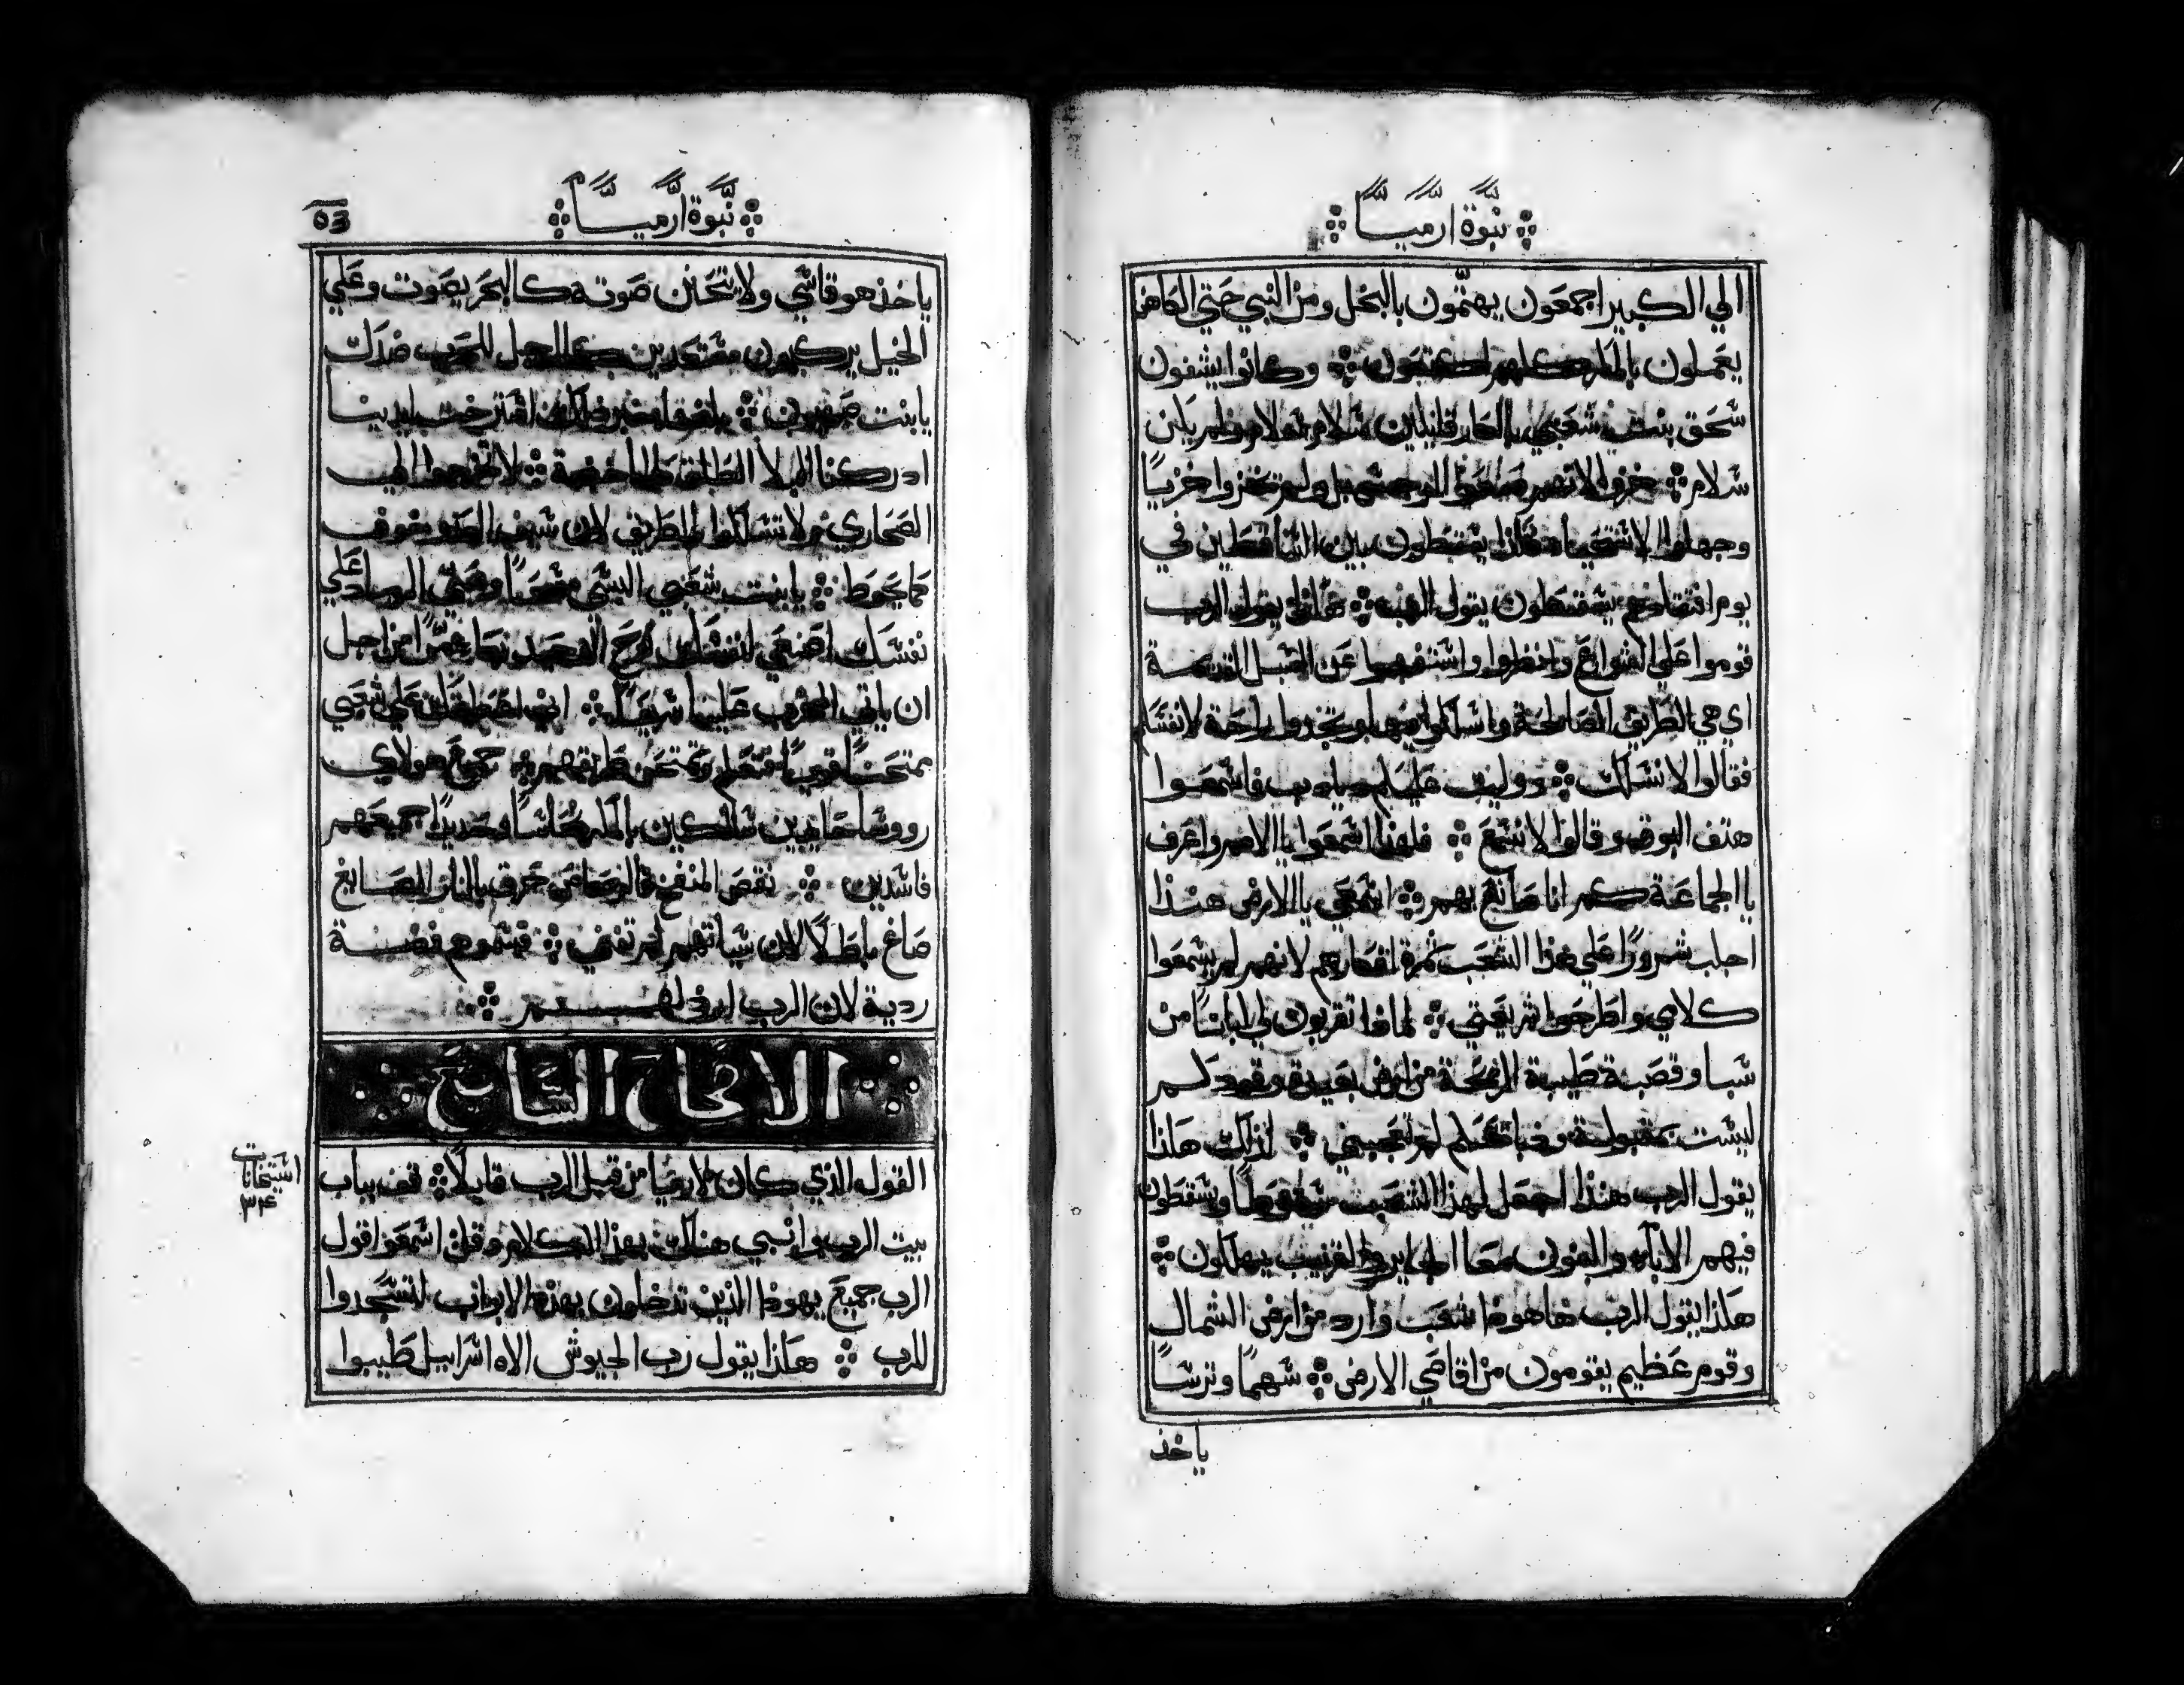 نبوة ارميا
الي الكبير اجمعون يهتمون بالبخل ومن النبي حتي الكاهن
يعملون بالمكر كلهم اجمعون وكانوا يشفون
سحق بنت شعبي بالعار قايلين سلام سلام ولم يكن
سلام خزوا لانهم صنعوا الرجس بل ولم يخزوا خزيا
وجهلوا الاستحيا فلذا يسقطون بين الساقطين في
يوم افتقادهم يسقطون يقول الرب هكذا يقول الرب
قوموا علي الشوارع وانظروا واستفهموا عن السبل القديمة
اي هي الطريق الصالحة واسلكوا فيها وتجدوا راحة لانفسكم
فقالوا لا نسلك ووليت عليكم فاسمعوا
هتف البوق وقالوا لا نسمع فلهذا اسمعوا يا الامم واعرف
يا الجماعة كم انا صانع بهم اسمعي يا الارض هنذا
اجلب شرورا علي هذا الشعب ثمرة افكارهم لانهم لم يسمعوا
كلامي واطرحوا شريعتي لماذا تقربون لي لبانا من
سبا وقصبة طيبة الريحة من ارض بعيدة وقودكم
ليست مقبولة وذبايحكم لم تعجبني لذلك هكذا
يقول الرب هنذا اجعل لهذا الشعب سقوطا ويسقطون
فيهم الاباء والبنون معا الجار والقريب يهلكون
هكذا يقول الرب هاهوذا شعب وارد من ارض الشمال
وقوم عظيم يقومون من اقاصي الارض سهما وترسا
ياخذ
نبوة ارميا
53
ياخذ هو قاسي ولا يتحنن صوته كالبحر يصوت وعلي
الخيل يركبون مستعدين كالرجل للحرب ضدك
يا بنت صهيون استرخت ايدينا
ادركنا البلا الطلق كالماخضة لا تخرجوا الي
الصحاري ولا تسلكوا بالطريق لان سيف العدو خوف
كما يحوط يا بنت شعبي البسي مسحا وهيلي الرماد علي
نفسك اصنعي لنفسك نوح الوحيد نوحا مرا من اجل
ان ياتي المخرب علينا سريعا اني اعطيتك علي شعبي
ممتحنا قويا فتعلم وتمتحن طريقهم جميع هولاي
روسا حايدين سالكين بالمكر نحاسا وحديدا جميعهم
فاسدين نقص المنفخ فالرصاص حرق بالنار الصايغ
صاغ باطلا لان سياتهم لم تفني فسموهم فضة
ردية لان الرب ارذلهم
الاصحاح السابع
القول الذي كان لارميا من قبل الرب قايلا قف بباب
بيت الرب وانبي هناك بهذا الكلام وقل اسمعوا قول
الرب جميع يهوذا الذين تدخلون بهذه الابواب لتسجدوا
للرب هكذا يقول رب الجيوش الاه اسراييل طيبوا
استيخانات
٣٤